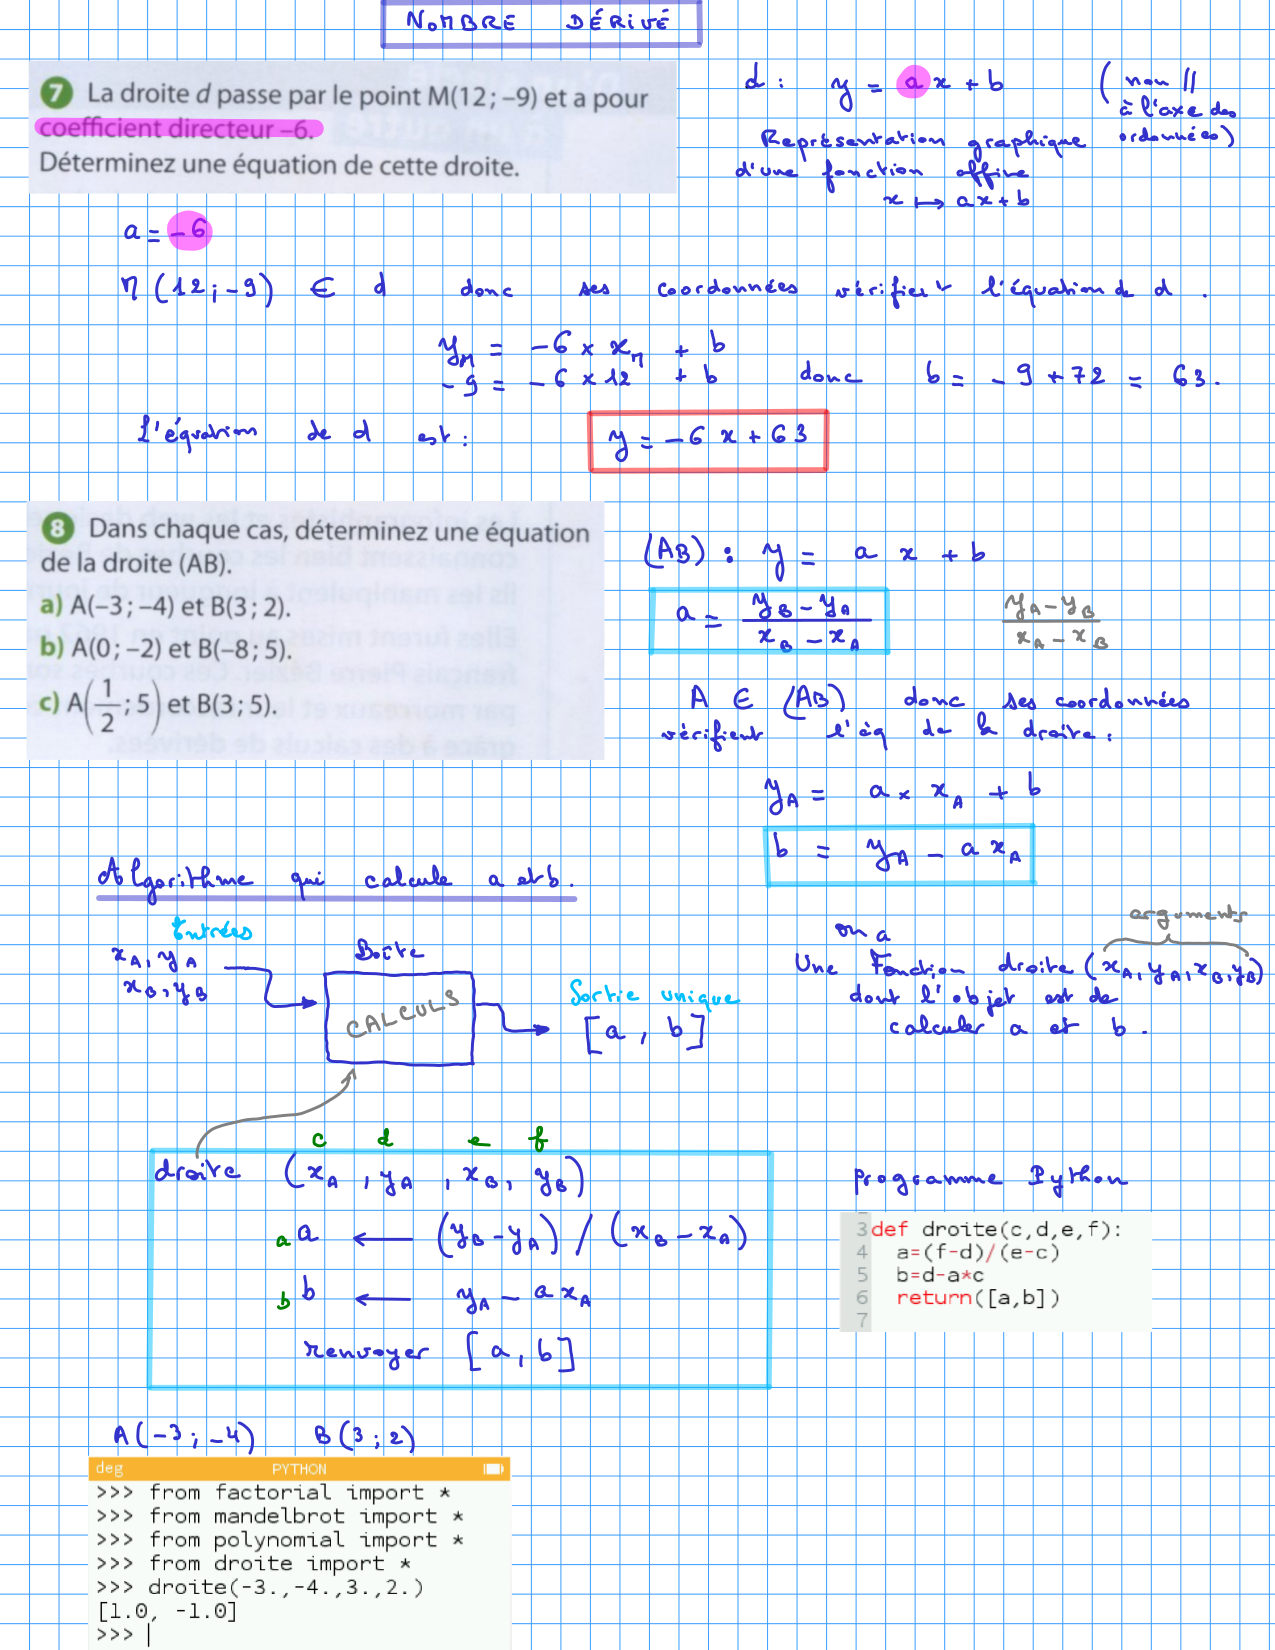 NOMBRE DÉRIVÉ
7 La droite d passe par le point M(12 ; –9) et a pour
coefficient directeur –6.
Déterminez une équation de cette droite.
d : y = ax + b
( non //
à l'axe des
ordonnées)
Représentation graphique
d'une fonction affine
x ↦ ax + b
a = -6
M (12 ; -9) ∈ d donc ses coordonnées vérifient l'équation de d .
y_M = -6 × x_M + b
-9 = -6 × 12 + b donc b = -9 + 72 = 63.
L'équation de d est :
y = -6 x + 63
8 Dans chaque cas, déterminez une équation
de la droite (AB).
a) A(–3 ; –4) et B(3 ; 2).
b) A(0 ; –2) et B(–8 ; 5).
c) A(1/2 ; 5) et B(3 ; 5).
(AB) : y = a x + b
a = (y_B - y_A) / (x_B - x_A)
(y_A - y_B) / (x_A - x_B)
A ∈ (AB) donc ses coordonnées
vérifient l'éq de la droite :
y_A = a × x_A + b
b = y_A - a x_A
Algorithme qui calcule a et b.
Entrées
x_A, y_A
x_B, y_B
Boîte
CALCULS
Sortie unique
[a , b]
arguments
on a
Une Fonction droite (x_A, y_A, x_B, y_B)
dont l'objet est de
calculer a et b .
c d e f
droite (x_A , y_A , x_B, y_B)
a a ← (y_B - y_A) / (x_B - x_A)
b b ← y_A - a x_A
renvoyer [a , b]
programme Python
3 def droite(c,d,e,f):
4 a=(f-d)/(e-c)
5 b=d-a*c
6 return([a,b])
7
A(-3 ; -4) B(3 ; 2)
deg PYTHON
>>> from factorial import *
>>> from mandelbrot import *
>>> from polynomial import *
>>> from droite import *
>>> droite(-3.,-4.,3.,2.)
[1.0, -1.0]
>>> |